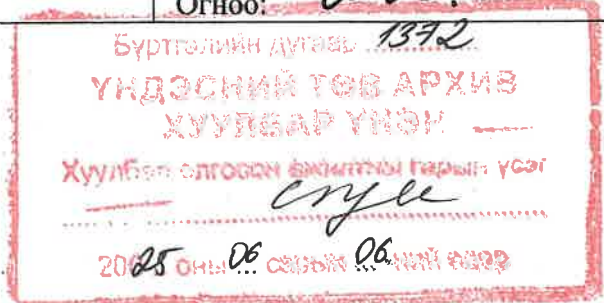 Огноо:
Бүртгэлийн дугаар 1372
ҮНДЭСНИЙ ТӨВ АРХИВ
ХУУЛБАР ҮНЭН
Хуулбар олгосон ажилтны гарын үсэг
2025 оны 06 сарын 06 ний өдөр